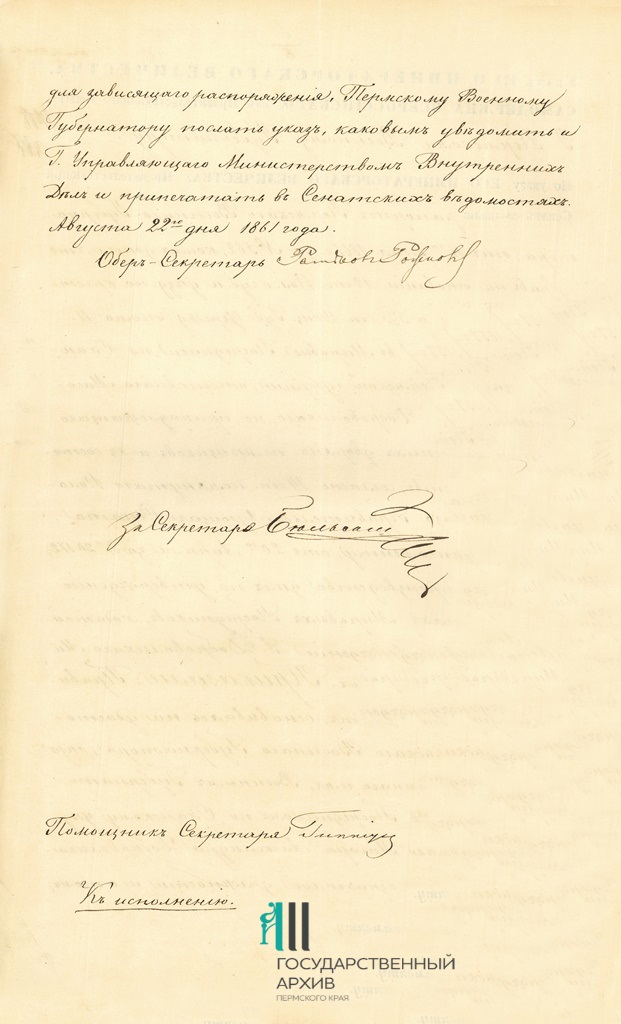 для зависящаго распоряженія, Пермскому Военному
Губернатору послать указъ, каковымъ увѣдомить и
Г. Управляющаго Министерствомъ Внутреннихъ
Дѣлъ и припечатать въ Сенатскихъ вѣдомостяхъ.
Августа 22го дня 1861 года.
Оберъ-Секретарь
За Секретаря
Помощникъ Секретаря Гиппіусъ
Къ исполненію.
ГОСУДАРСТВЕННЫЙ
АРХИВ
ПЕРМСКОГО КРАЯ